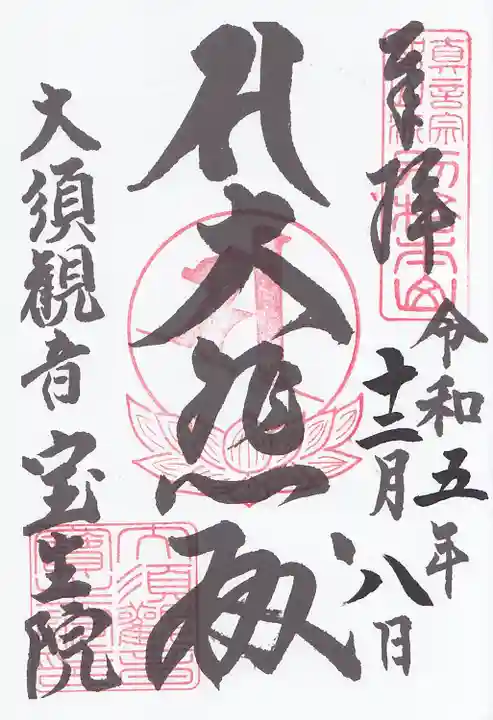 奉拝
令和五年
十二月八日
𑖭 大悲殿
大須観音 宝生院
真言宗
別格本山
大須觀音
寶生院